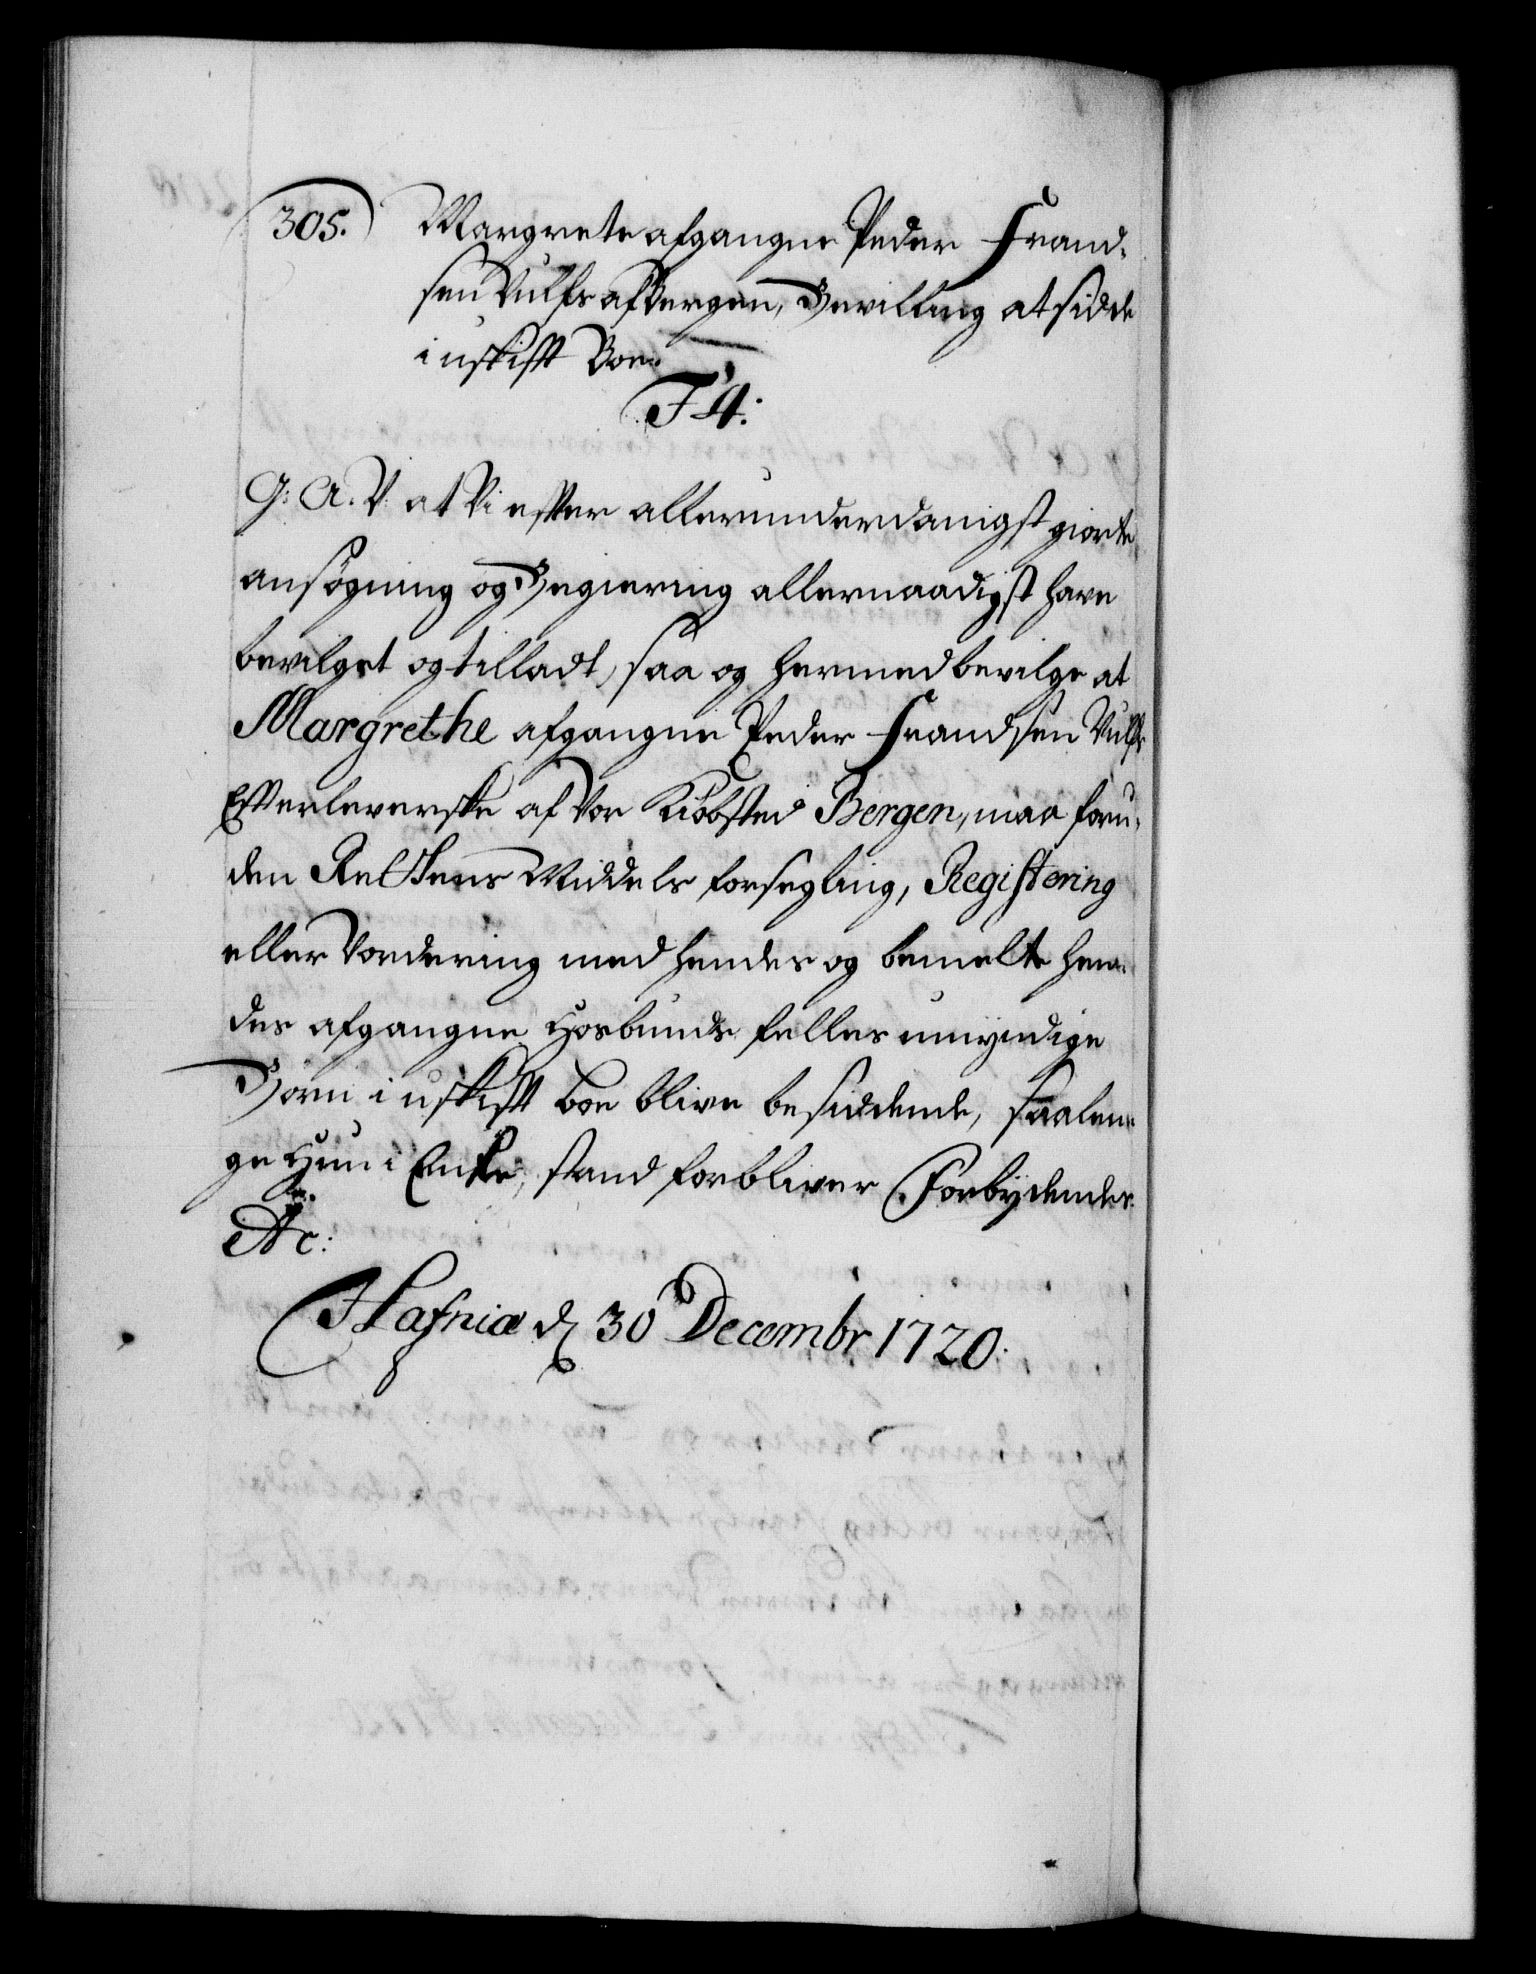 305. Margrete afgangne Peder Frand-
sen Vulfs af Bergen, Bevilling at sidde
i uskifft Boe.
F 4:
G: A. V. at Vi effter allerunderdanigst giorte
ansögning og Begiering allernaadigst have
bevilget og tilladt, saa og hermed bevilge at
Margrethe afgangne Peder Frandsen Vulfs
Effterleverske af Vor Kiöbsted Bergen, maa foru-
den Rettens Middels forsegling, Registering
eller Vordering med hendes og bemelte hen-
des afgangne Hosbunds felles umyndige
Börn i uskifft boe blive besiddende, saalen-
ge Hun i Enke, stand forbliver Forbydendes.
Etc:
Hafniæ d 30 Decembr 1720.